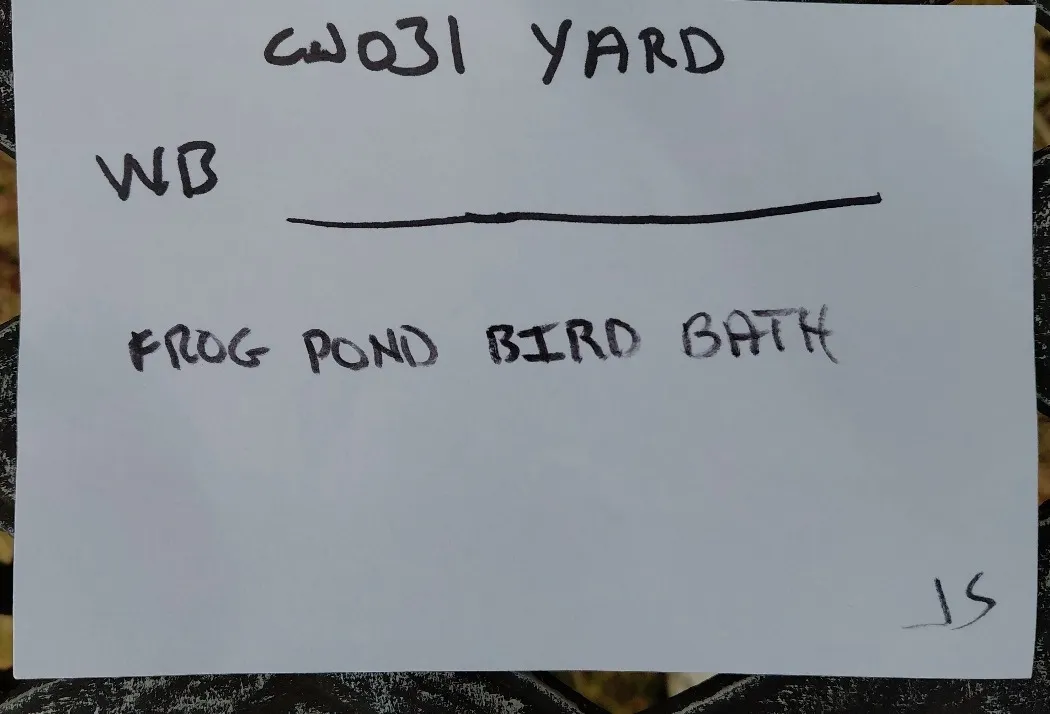 CW031 YARD
WB
FROG POND BIRD BATH
JS